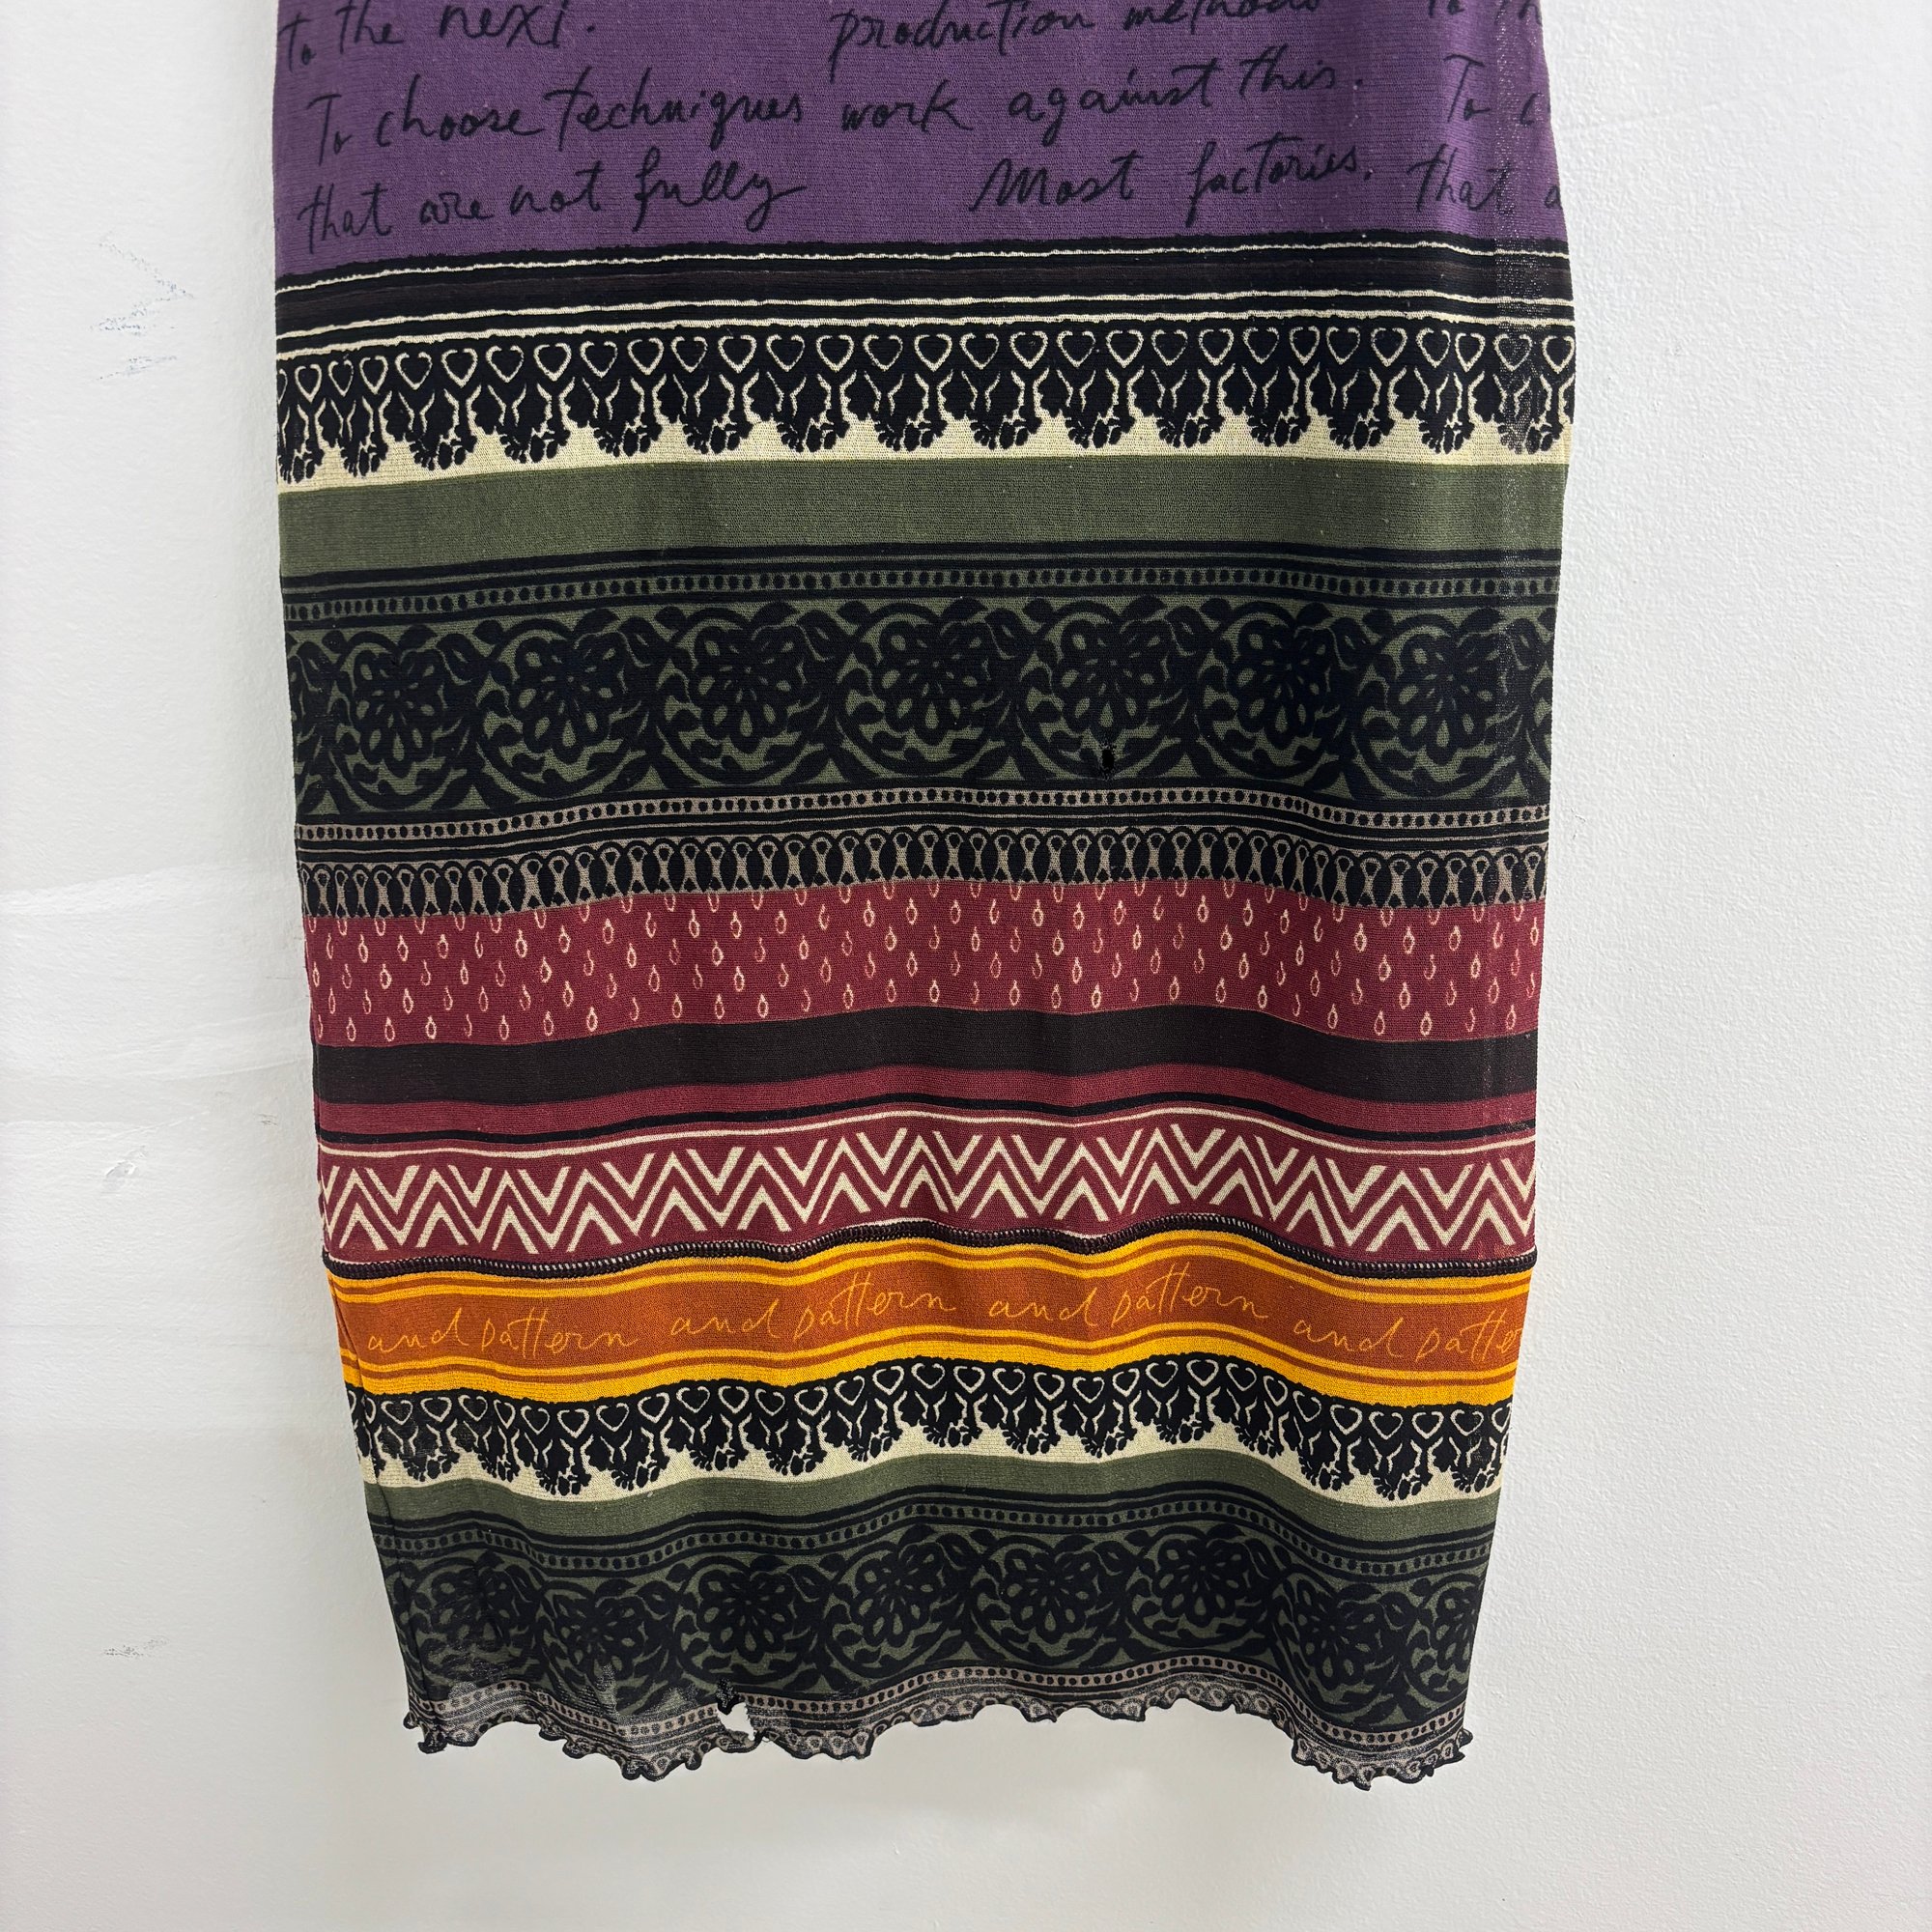 to the next. production methods
To choose techniques work against this. To c
that are not fully Most factories. that a
and pattern and pattern and pattern and patter